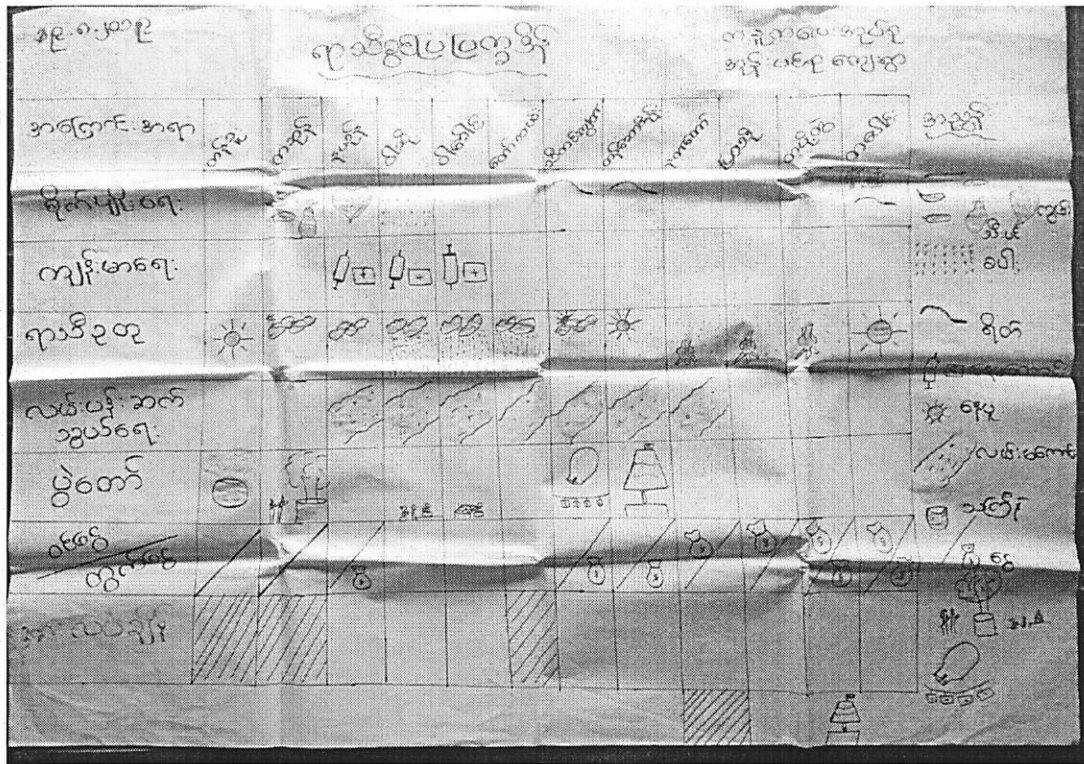 ရာသီခွင်ပြပြက္ခဒိန်
အုန်းပင်စု ကျေးရွာ
အကြောင်းအရာ
တန်ခူး
ကဆုန်
နယုန်
ဝါဆို
ဝါခေါင်
တော်သလင်း
သီတင်းကျွတ်
တန်ဆောင်မုန်း
နတ်တော်
ပြာသို
တပို့တွဲ
တပေါင်း
အညွှန်း
စိုက်ပျိုးရေး
ကျွဲ
ကျန်းမာရေး
ရာသီဥတု
ရိတ်
လမ်းပန်းဆက်
သွယ်ရေး
နေပူ
လမ်းမကောင်း
ပွဲတော်
သင်္ကြန်
ဝင်ငွေ
ထွက်ငွေ
ငွေ
အားလပ်ချိန်